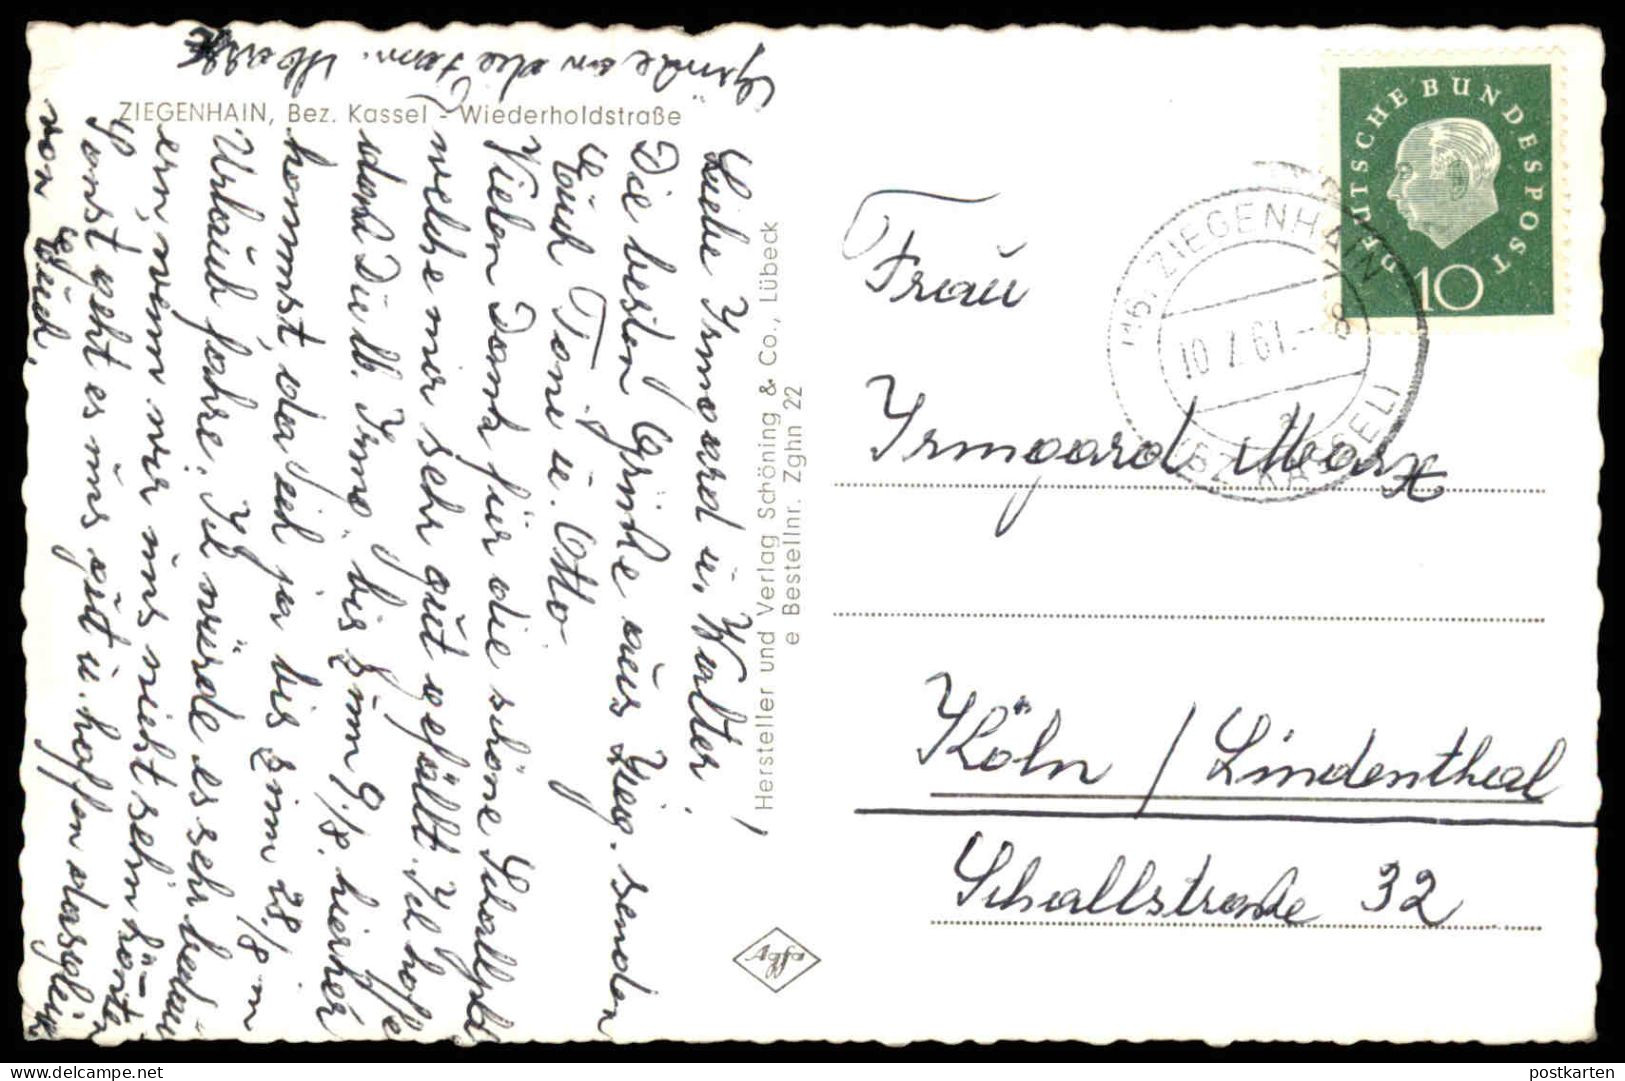 ZIEGENHAIN, Bez. Kassel - Wiederholdstraße
Grüße an die Fam. Marx
Liebe Irmgard u. Walter!
Die besten Grüße aus Zieg. senden
Euch Toni u. Otto
Vielen Dank für die schöne Schallpl.
welche mir sehr gut gefällt. Ich hoffe
daß Du lb. Irmg. bis zum 9./8. hierher
kommst, da ich ja bis zum 28./8 in
Urlaub fahre. Ich würde es sehr bedau
ern, wenn wir uns nicht sehn könnten
Sonst geht es uns gut u. hoffen dasgleiche
von Euch.
Hersteller und Verlag Schöning & Co., Lübeck
e Bestellnr. Zghn 22
Agfa
DEUTSCHE BUNDESPOST
10
(16) ZIEGENHAIN
10.7.61.-8
a
BZ KASSEL
Frau
Irmgard Marx
Köln / Lindenthal
Schallstraße 32
postkarten